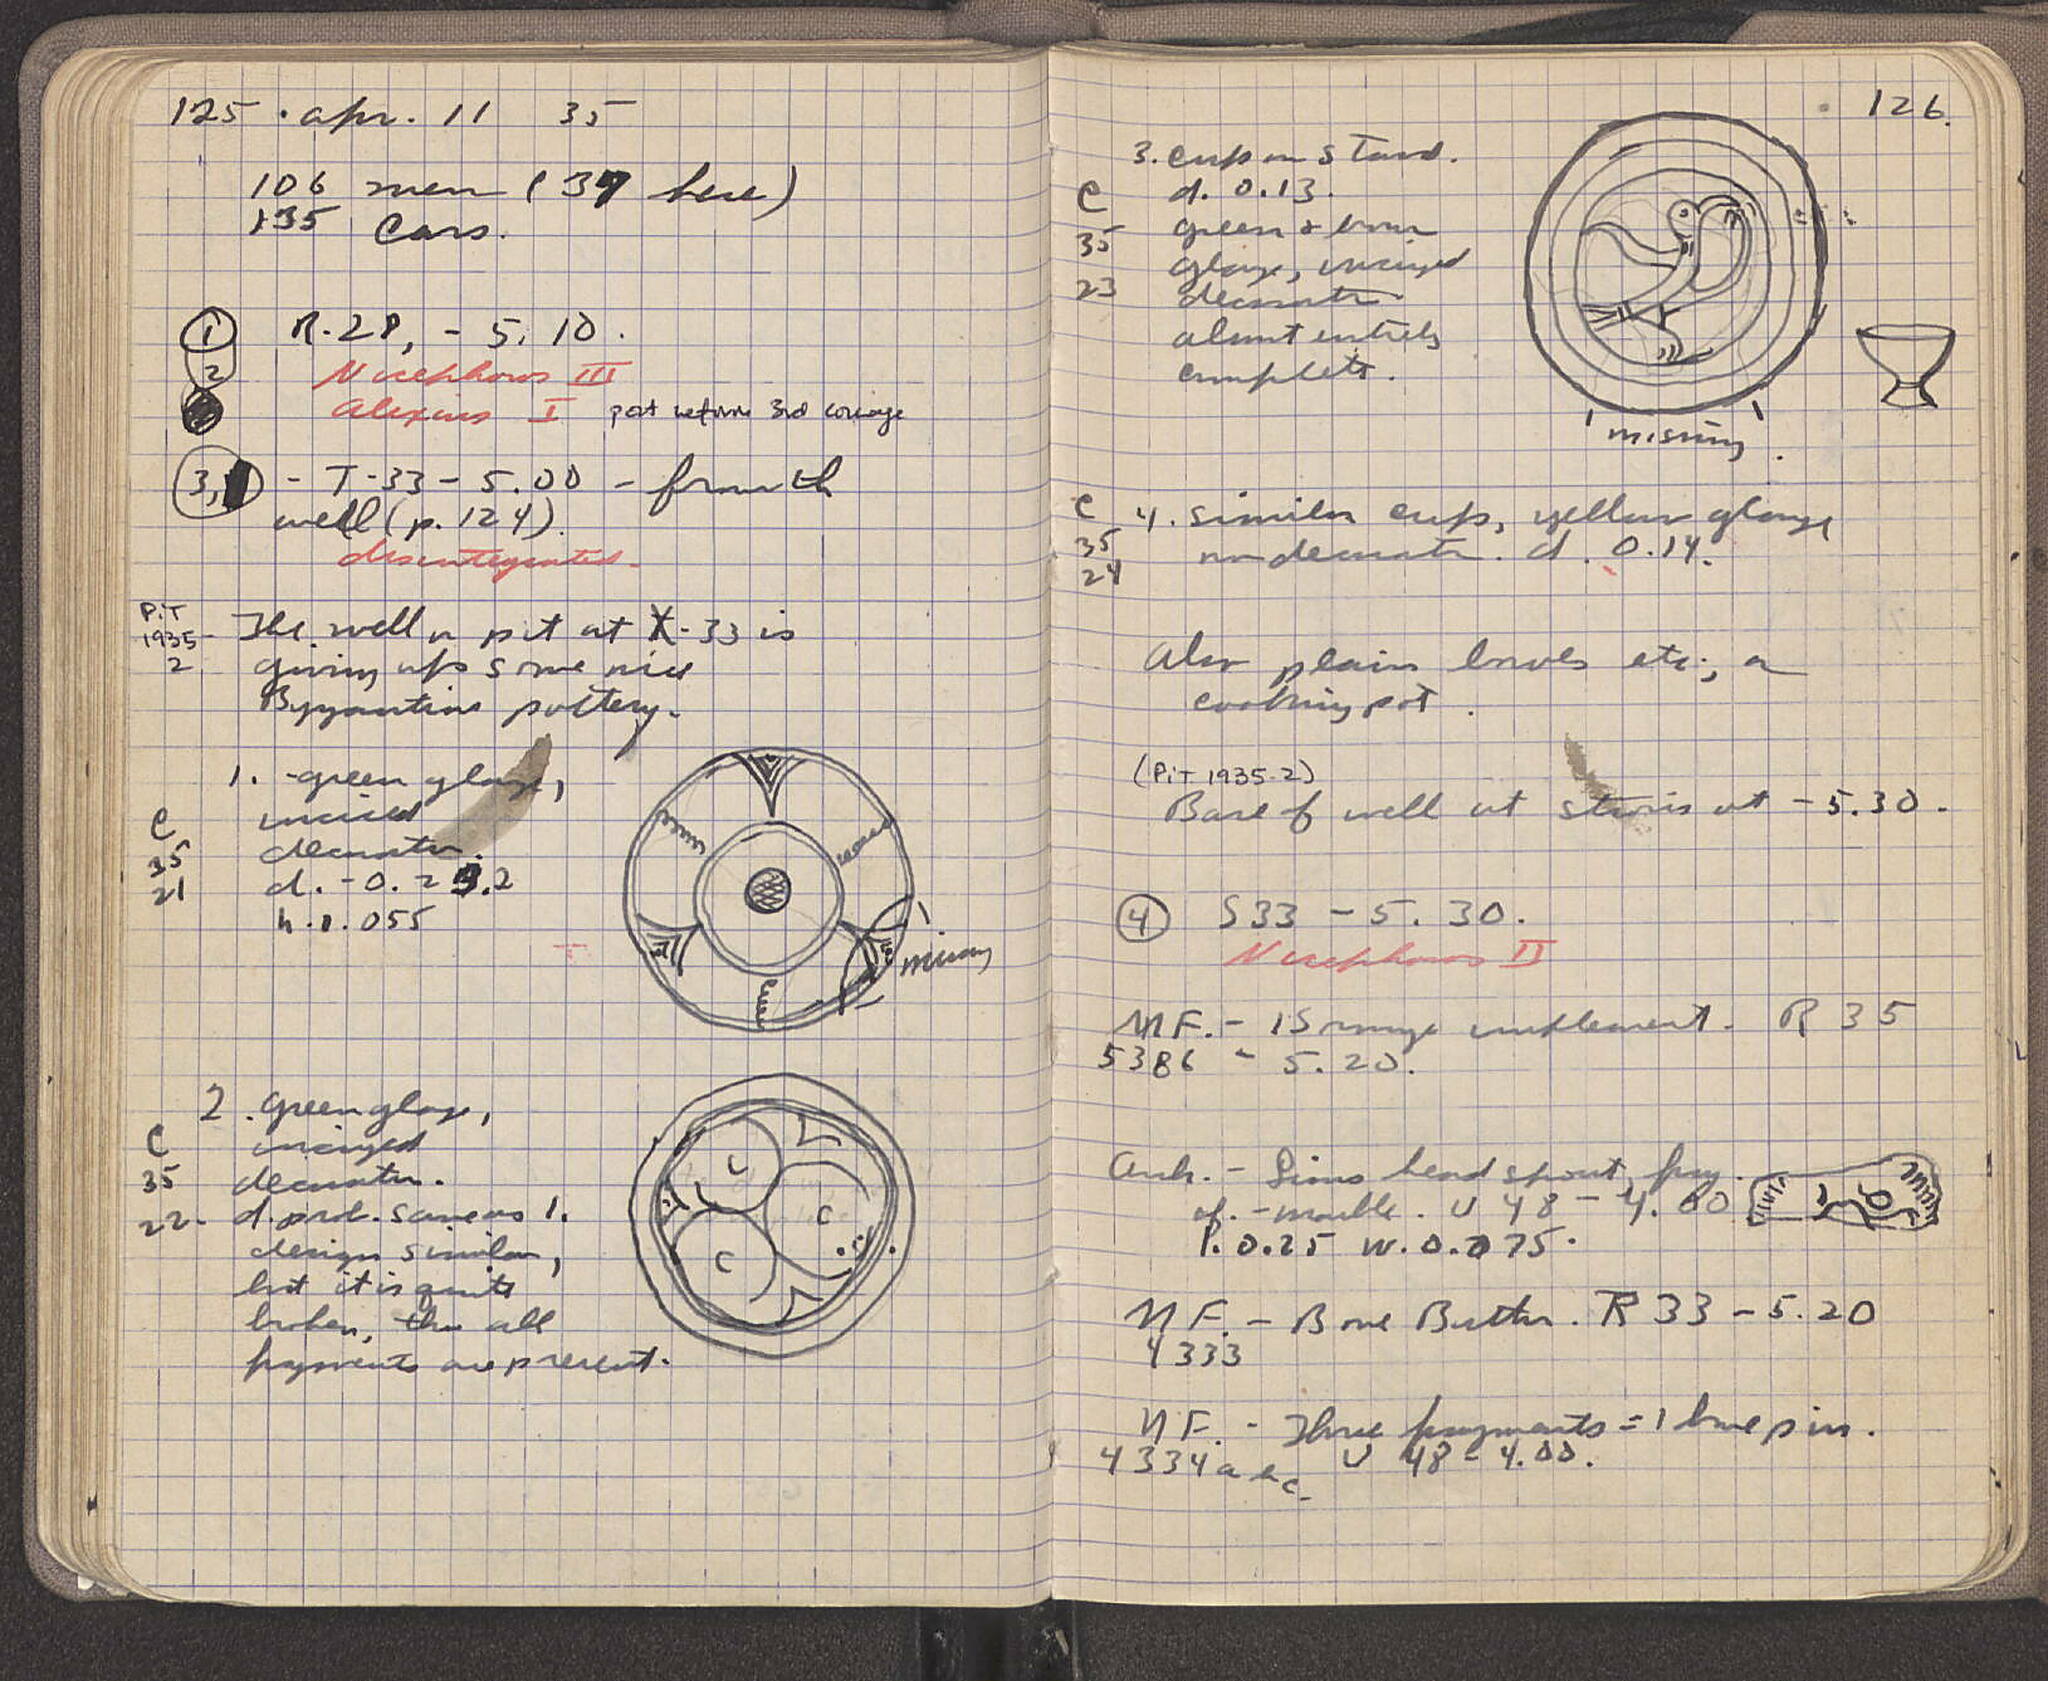 125 . apr. 11 35
106 men (37 here)
135 cars.
1 R.28, - 5.10.
2 Nicephorus III
Alexius I post reform 3rd coinage
3, - T-33 - 5.00 - from th
well (p. 124).
disintegrated.
PiT
1935-
2
The well or pit at X-33 is
giving up some nice
Byzantine pottery.
1. green glaze,
incised
decoratn.
d. - 0.2 .2
h. 0.055
C
35
21
missing
2. green glaze,
incized
decoratn.
d. prob. same as 1.
design similar,
but it is quite
broken, tho all
fragments are present.
C
35
22.
126.
3. cup on stand.
d. 0.13.
green & brown
glaze, incized
decoratn.
almost entirely
complete.
C
35
23
missing
C
35
24
4. similar cup, yellow glaze,
no decoratn. d. 0.14.
Also plain bowls etc., a
cooking pot.
(PiT 1935-2)
Base of well at stairs at - 5.30.
4 S33 - 5.30.
Nicephorus II
MF. - Bronze implement. R 35
5386 - 5.20.
Arch. - Lions head spout, frag.
of. - marble. U 48 - 4.80
l. 0.25 w. 0.075.
MF. - Bone Button. R 33 - 5.20
4333
MF. - Three fragments = 1 bone pin.
4334 a b c. U 48 - 4.00.